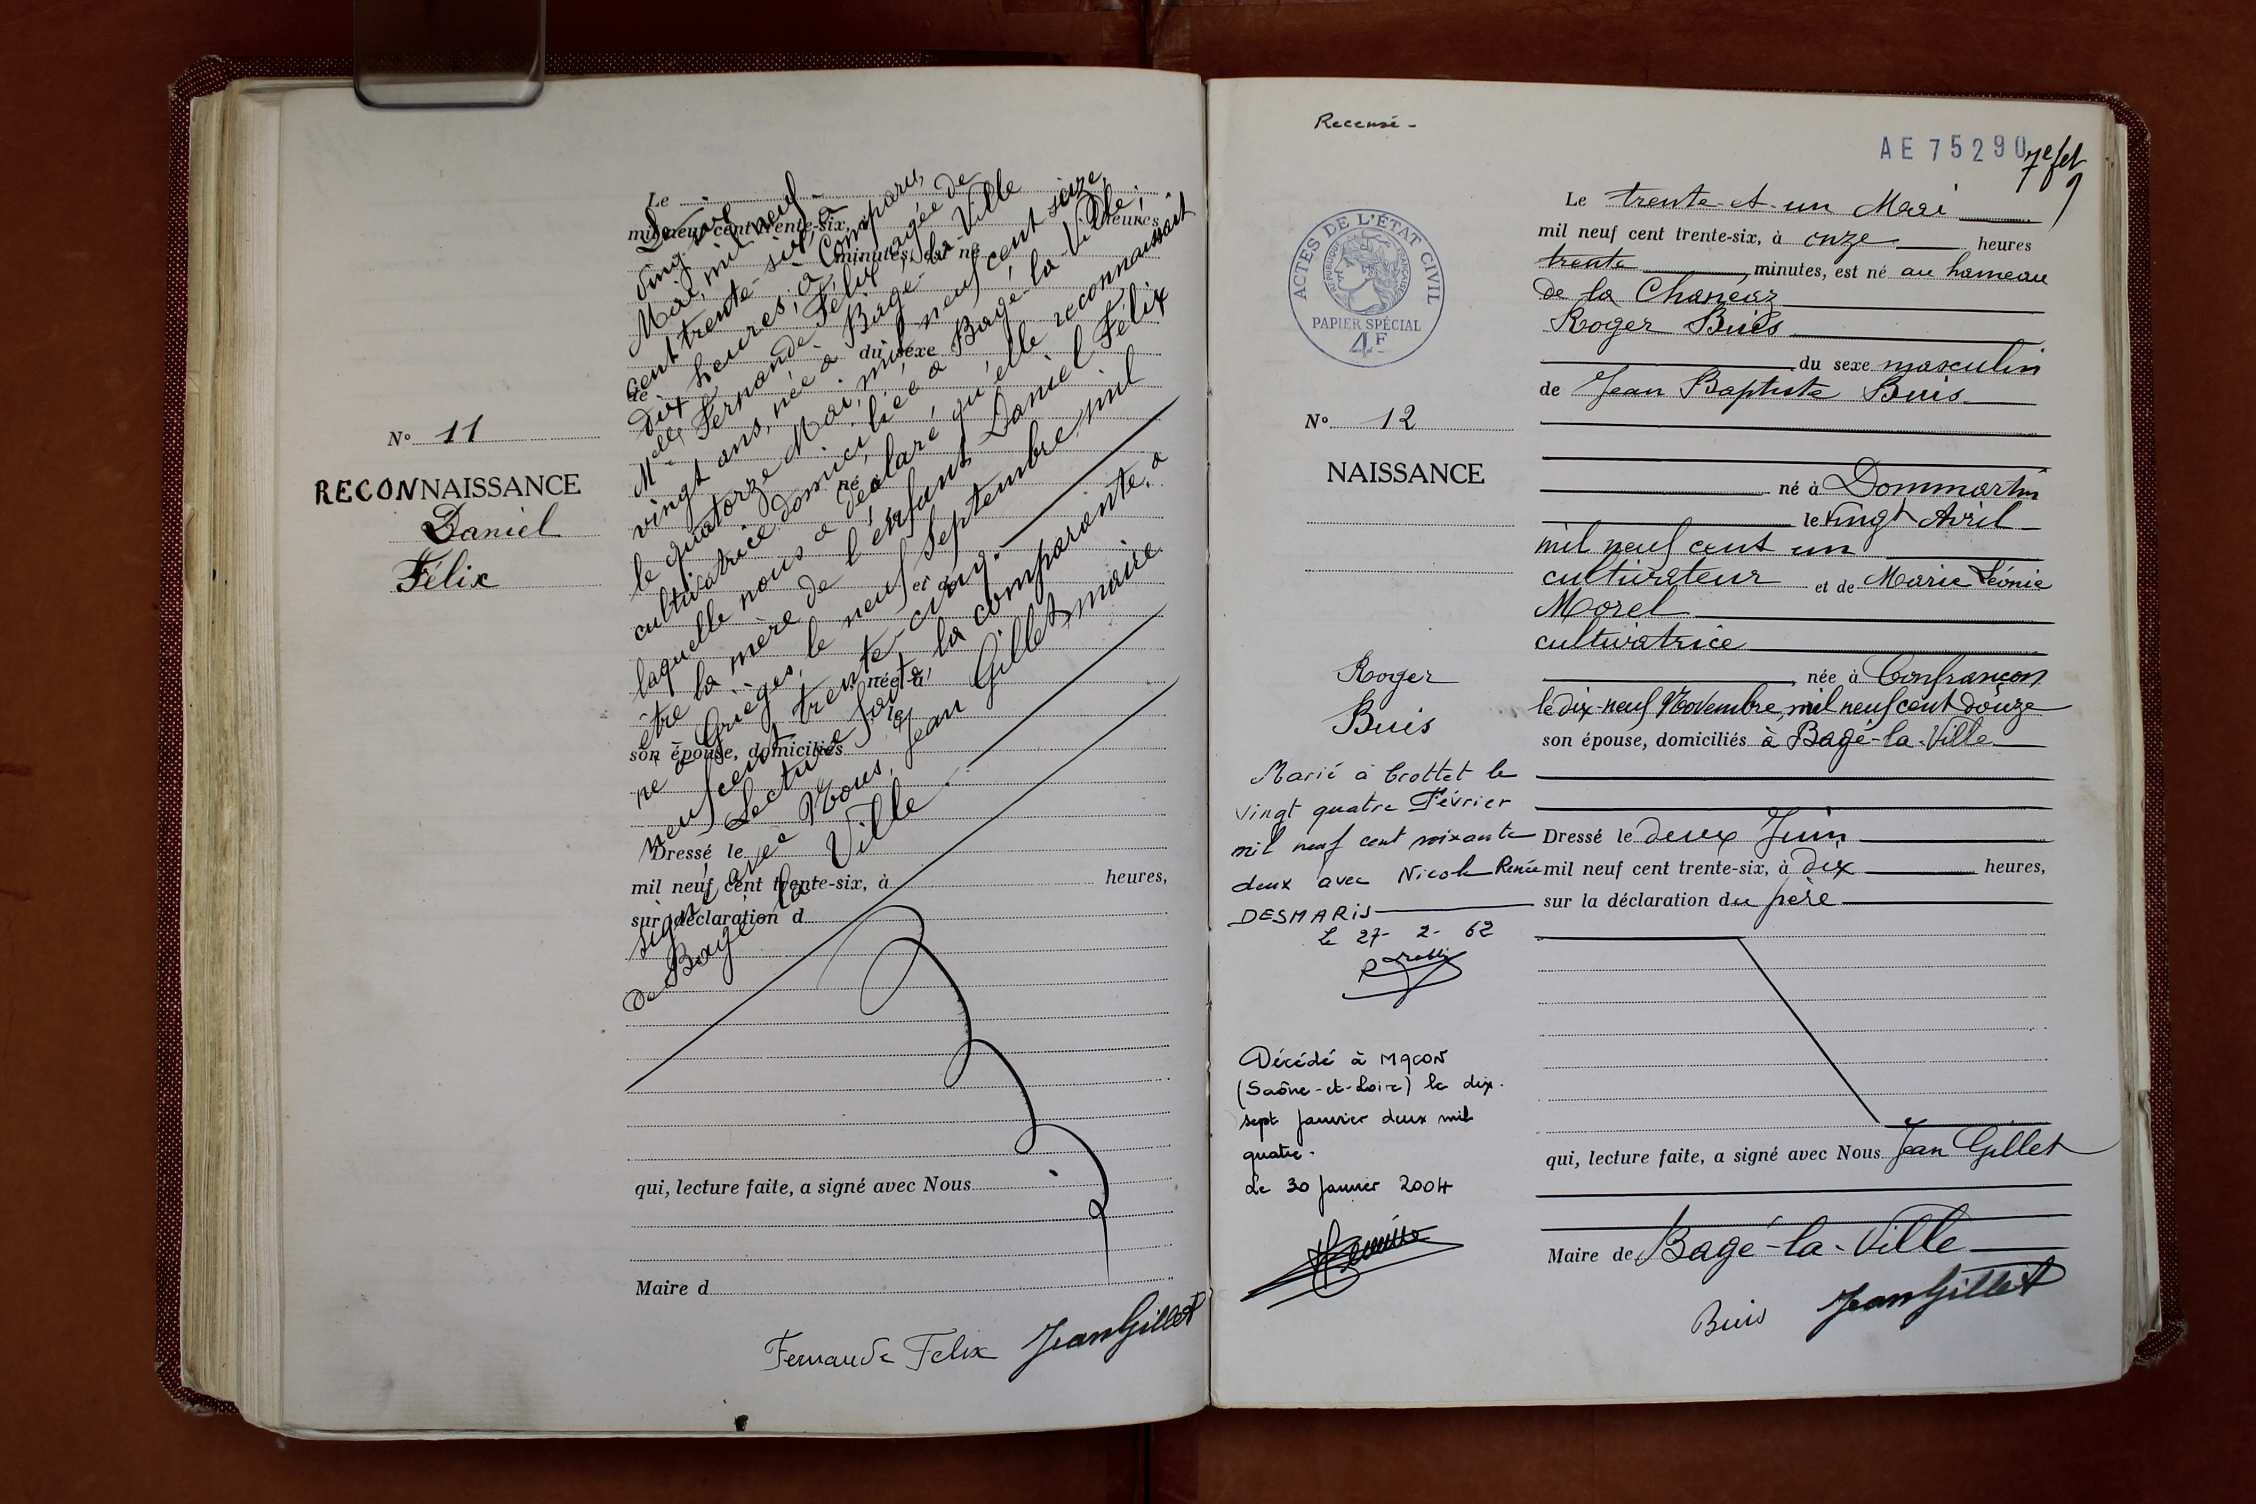 N° 11
RECONNAISSANCE
Daniel
Félix
Le
mil neuf cent trente-six, à heures
minutes, est né
du sexe
de
né à
et de
née à
le
son épouse, domiciliés
Dressé le
mil neuf cent trente-six, à heures,
sur déclaration d
qui, lecture faite, a signé avec Nous
Maire d
Le
vingt
Mai, mil neuf
cent trente-six, à
dix heures, a comparu,
Melle Fernande Félix, âgée de
vingt ans, née à Bagé-la-Ville
le quatorze Mai, mil neuf cent seize,
cultivatrice domiciliée à Bagé-la-Ville,
laquelle nous a déclaré qu'elle reconnaissait
être la mère de l'enfant Daniel Félix
né à Grièges, le neuf Septembre, mil
neuf cent trente-cinq.
Lecture faite, la comparante, a
signé avec Nous, Jean Gillet, maire
de Bagé-la-Ville
Fernande Felix JeanGillet
Recensé -
AE 75290
7e fet
9
ACTES DE L'ÉTAT CIVIL
RÉPUBLIQUE FRANÇAISE
PAPIER SPÉCIAL
4F
N° 12
NAISSANCE
Roger
Buis
Marié à Crottet le
vingt quatre Février
mil neuf cent soixante
deux avec Nicole Renée
DESMARIS
Le 27- 2- 62
Décédé à MACON
(Saône-et-Loire) le dix.
sept janvier deux mil
quatre.
Le 30 Janvier 2004
Le trente-et-un Mai
mil neuf cent trente-six, à onze heures
trente minutes, est né au hameau
de la Chanéaz
Roger Buis
du sexe masculin
de Jean Baptiste Buis
né à Dommartin
le vingt Avril
mil neuf cent un
cultivateur et de Marie Léonie
Morel
cultivatrice
née à Confrançon
le dix-neuf Novembre, mil neuf cent douze
son épouse, domiciliés à Bagé-la-Ville
Dressé le deux Juin
mil neuf cent trente-six, à dix heures,
sur la déclaration du père
qui, lecture faite, a signé avec Nous Jean Gillet
Maire de Bagé-la-Ville
Buis JeanGillet